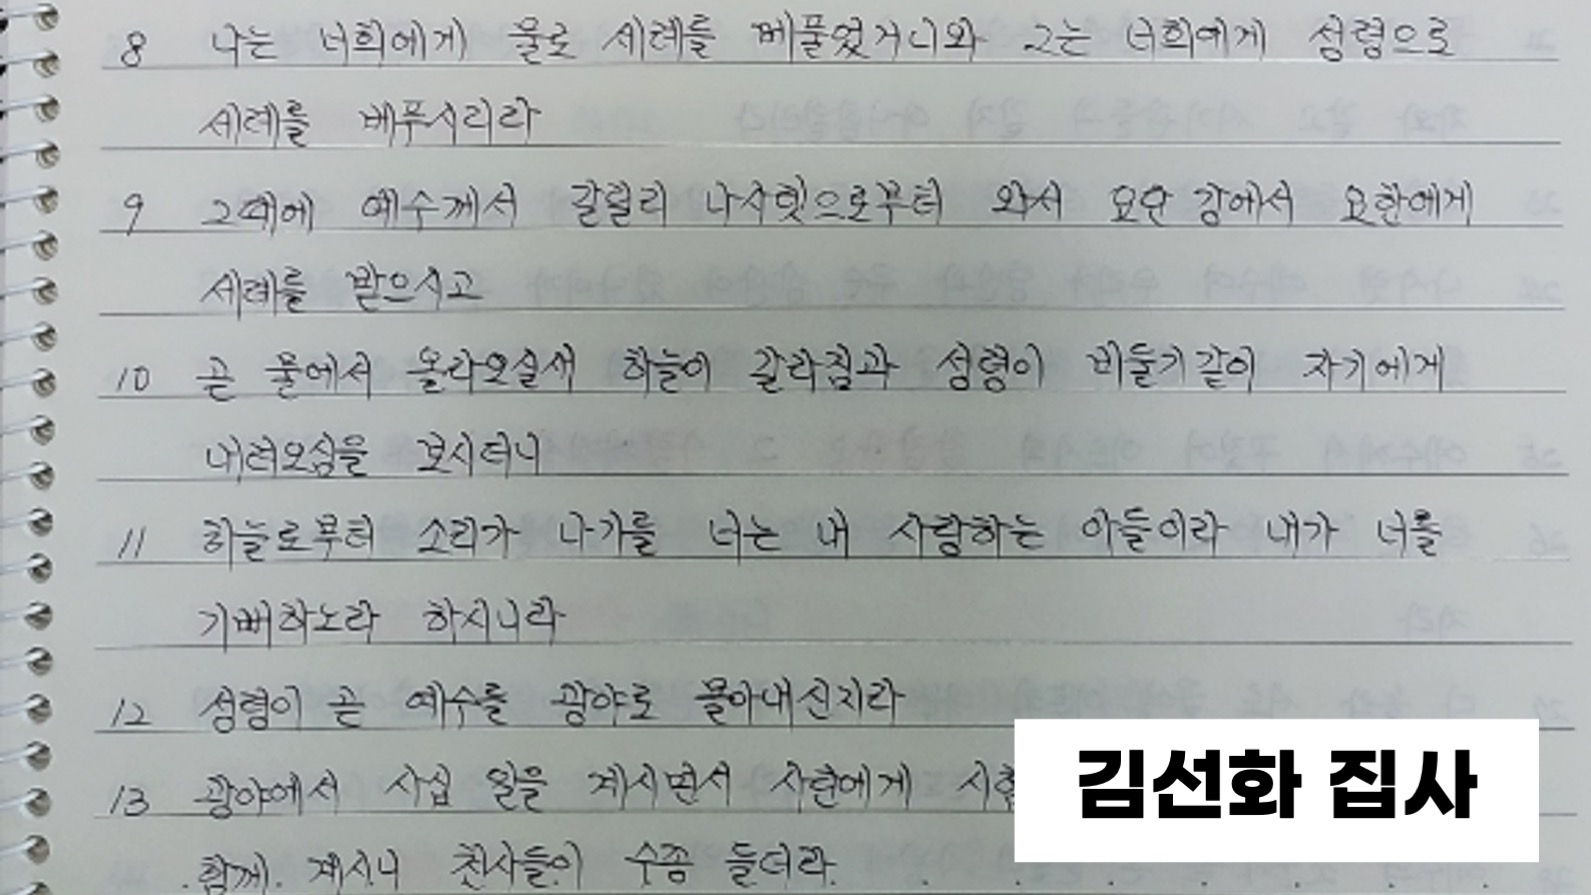 8 나는 너희에게 물로 세례를 베풀었거니와 그는 너희에게 성령으로
세례를 베푸시리라
9 그때에 예수께서 갈릴리 나사렛으로부터 와서 요단 강에서 요한에게
세례를 받으시고
10 곧 물에서 올라오실새 하늘이 갈라짐과 성령이 비둘기 같이 자기에게
내려오심을 보시더니
11 하늘로부터 소리가 나기를 너는 내 사랑하는 아들이라 내가 너를
기뻐하노라 하시니라
12 성령이 곧 예수를 광야로 몰아내신지라
13 광야에서 사십 일을 계시면서 사탄에게
함께 계시니 천사들이 수종 들더라
김선화 집사